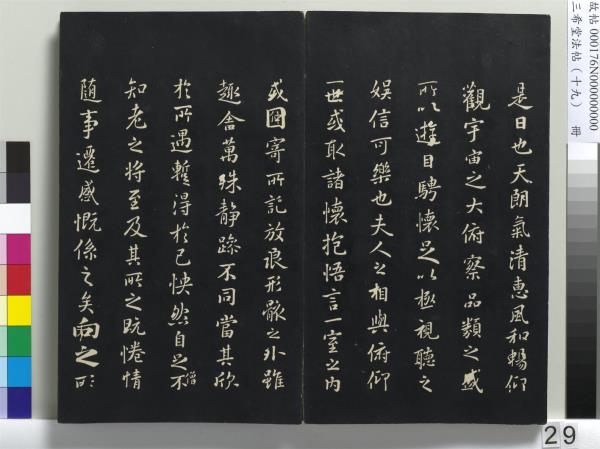 故帖 000176N000000000
三希堂法帖（十九） 冊
是日也天朗氣清惠風和暢仰
觀宇宙之大俯察品類之盛
所以遊目騁懷足以極視聽之
娛信可樂也夫人之相與俯仰
一世或取諸懷抱悟言一室之內
或因寄所託放浪形骸之外雖
趣舍萬殊靜躁不同當其欣
於所遇暫得於己怏然自足不
僧
知老之將至及其所之既惓情
隨事遷感慨係之矣向之所
29